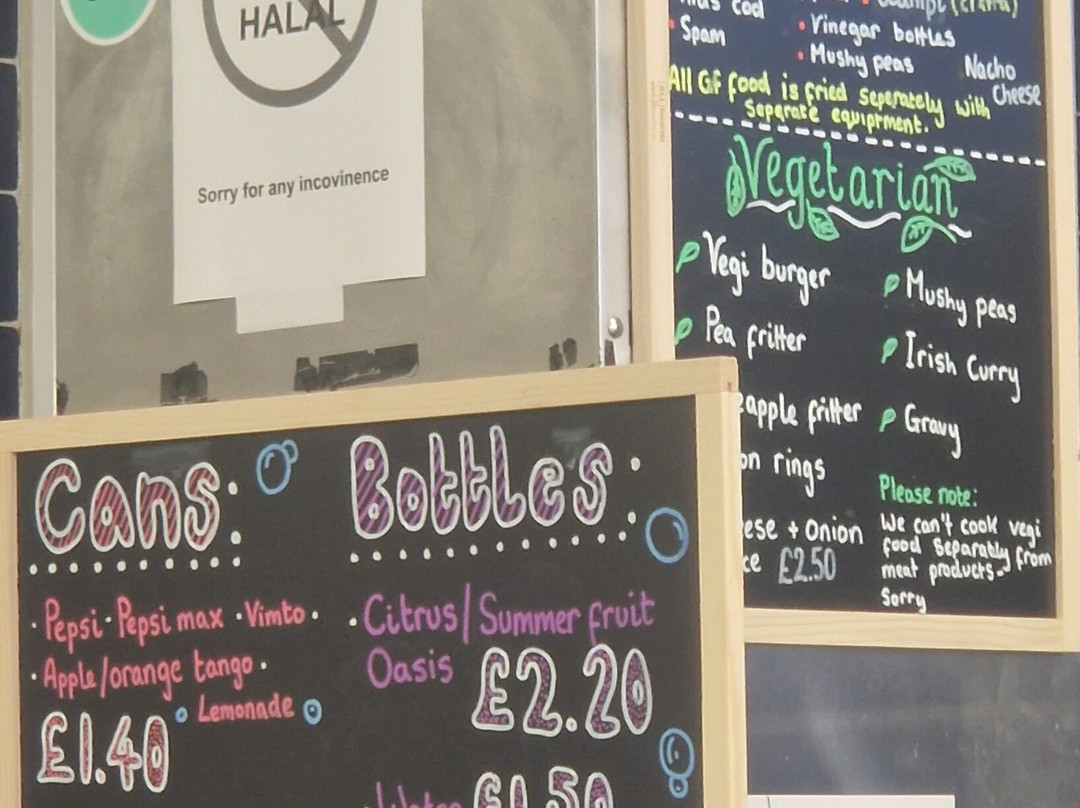 HALAL
Sorry for any incovinence
cod
• Spam
• Vinegar bottles
• Mushy peas
Nacho
Cheese
All GF food is fried seperately with
seperate equiprment.
Vegetarian
Vegi burger
Pea fritter
eapple fritter
on rings
ese + Onion
ce £2.50
Mushy peas
Irish Curry
Gravy
Please note:
We can't cook vegi
food separatly from
meat products-
Sorry
Cans:
• Pepsi • Pepsi max • Vimto •
• Apple/orange tango •
Lemonade
£1.40
Bottles:
• Citrus/Summer fruit
Oasis £2.20
Water £1.50